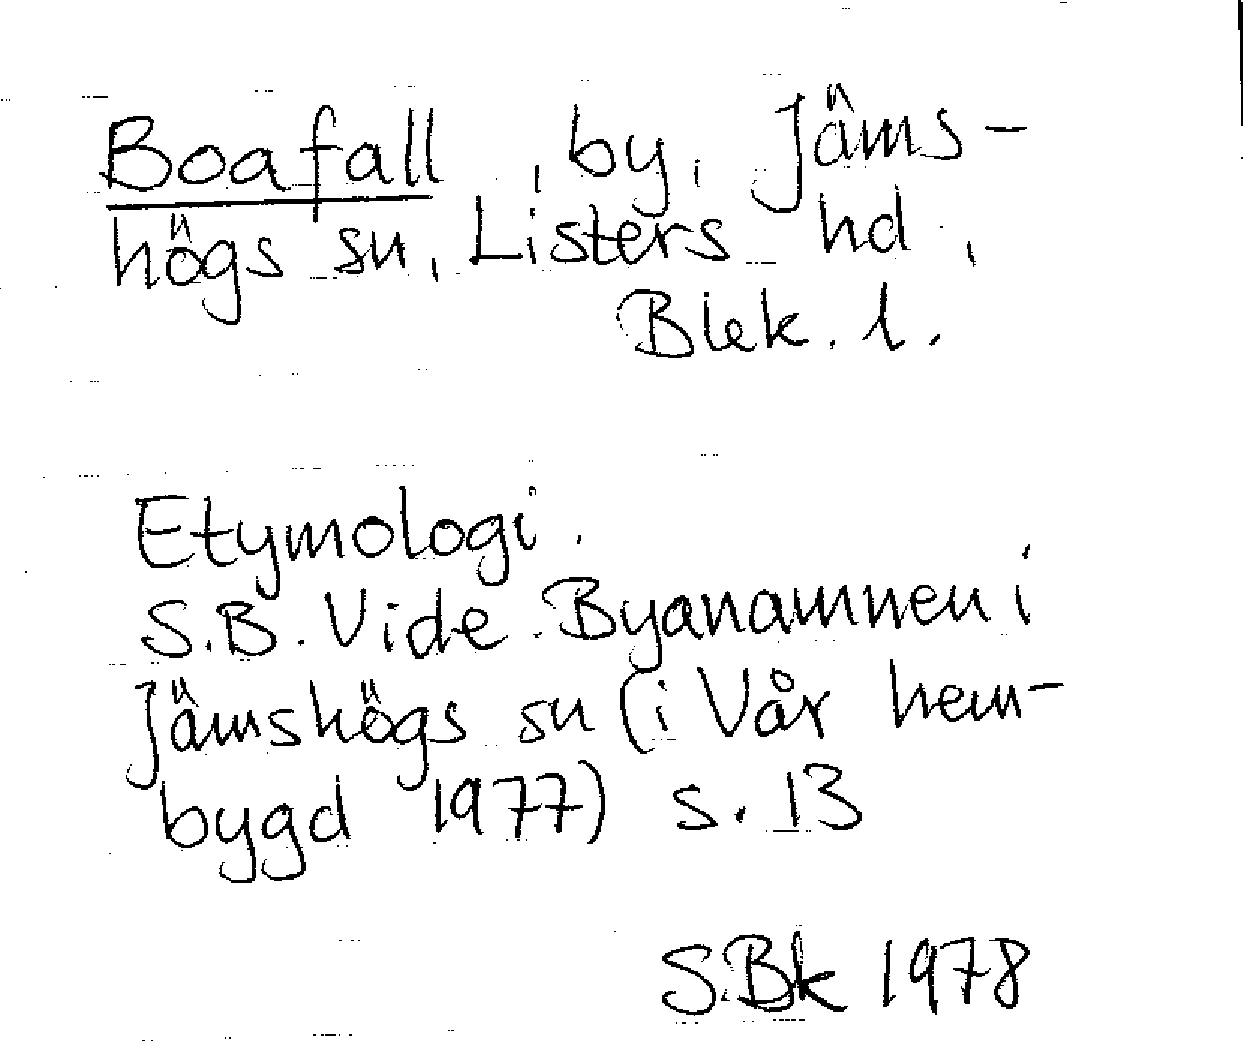 Boafall, by, Jäms-
högs sn, Listers hd,
Blek. l.
Etymologi.
S.B. Vide. Byanamnen i
Jämshögs sn (i Vår hem-
bygd 1977) s. 13
SBk 1978